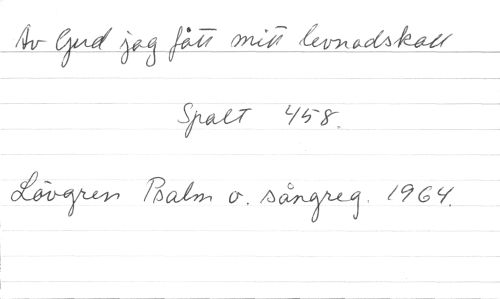 Av Gud jag fått mitt levnadskall
Spalt 458.
Lövgren Psalm o. sångreg. 1964.